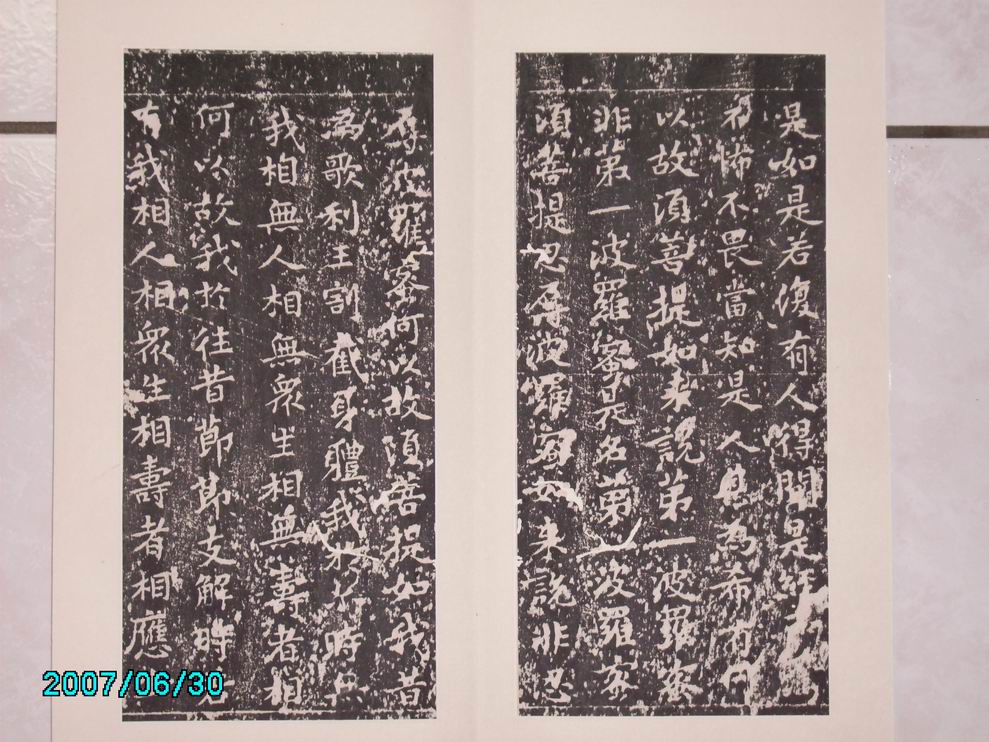 是如是若復有人得聞是經
不怖不畏當知是人甚為希有何
以故須菩提如來說第一波羅蜜
非第一波羅蜜是名第一波羅蜜
須菩提忍辱波羅蜜如來說非忍
辱波羅蜜何以故須菩提如我昔
為歌利王割截身體我於爾時無
我相無人相無眾生相無壽者相
何以故我於往昔節節支解時若
有我相人相眾生相壽者相應
2007/06/30